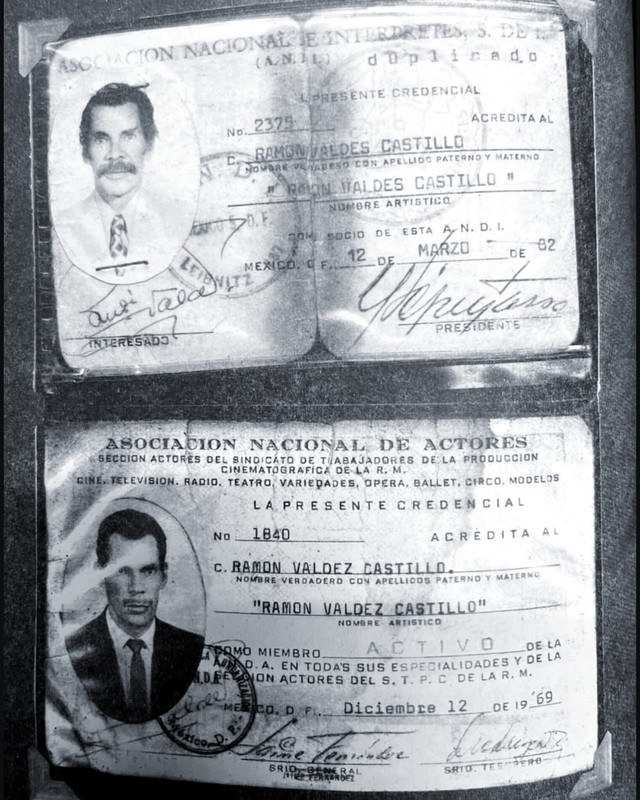 ASOCIACION NACIONAL DE INTERPRETES, S. DE I.
(A.N.D.I.) duplicado
LA PRESENTE CREDENCIAL
No. 2375 ACREDITA AL
C. RAMON VALDES CASTILLO
NOMBRE VERDADERO CON APELLIDO PATERNO Y MATERNO
" RAMON VALDES CASTILLO "
NOMBRE ARTISTICO
COMO SOCIO DE ESTA A. N. D. I.
MEXICO, D. F., 12 DE MARZO DE 82
LEIBNITZ
INTERESADO
PRESIDENTE
ASOCIACION NACIONAL DE ACTORES
SECCION ACTORES DEL SINDICATO DE TRABAJADORES DE LA PRODUCCION
CINEMATOGRAFICA DE LA R. M.
CINE, TELEVISION, RADIO, TEATRO, VARIEDADES, OPERA, BALLET, CIRCO, MODELOS
LA PRESENTE CREDENCIAL
No 1840 ACREDITA AL
C. RAMON VALDEZ CASTILLO.
NOMBRE VERDADERO CON APELLIDOS PATERNO Y MATERNO
"RAMON VALDEZ CASTILLO"
NOMBRE ARTISTICO
COMO MIEMBRO ACTIVO DE LA
D.A. EN TODAS SUS ESPECIALIDADES Y DE LA
ACTORES DEL S. T. P. C DE LA R. M.
MEXICO, D. F., Diciembre 12 DE 19 '69
México, D. F.
Jaime Fernández
SRIO. GENERAL SRIO. TESORERO
JAIME FERNANDEZ